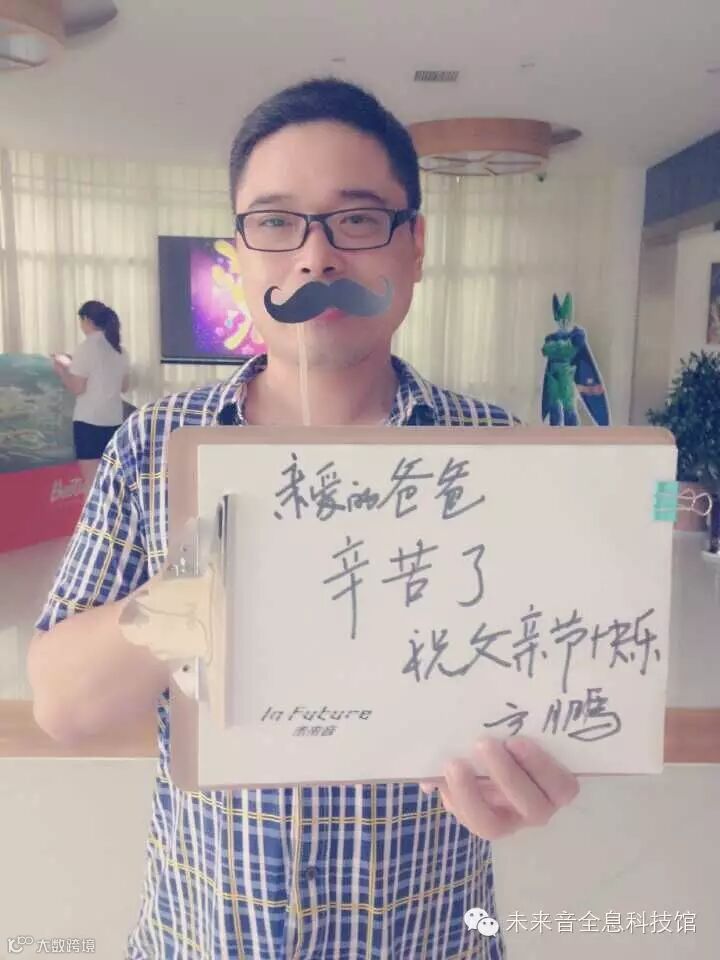 亲爱的爸爸
辛苦了
祝父亲节快乐
方鹏
In Future
未来音
未来音全息科技馆
大数跨境